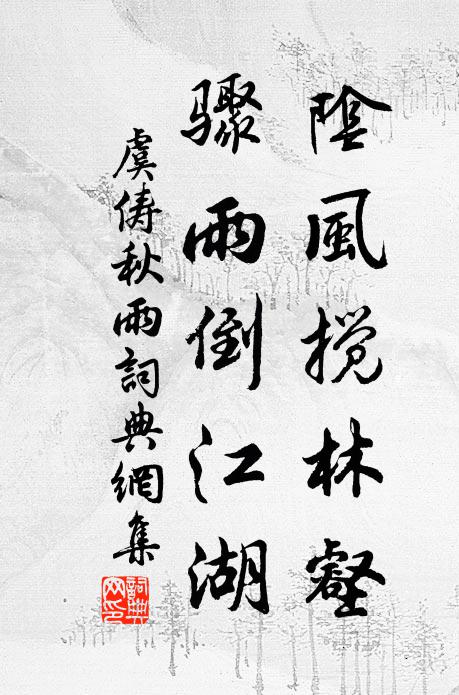 陰風攪林壑
驟雨倒江湖
虞儔秋雨詞典網集
詞典网印